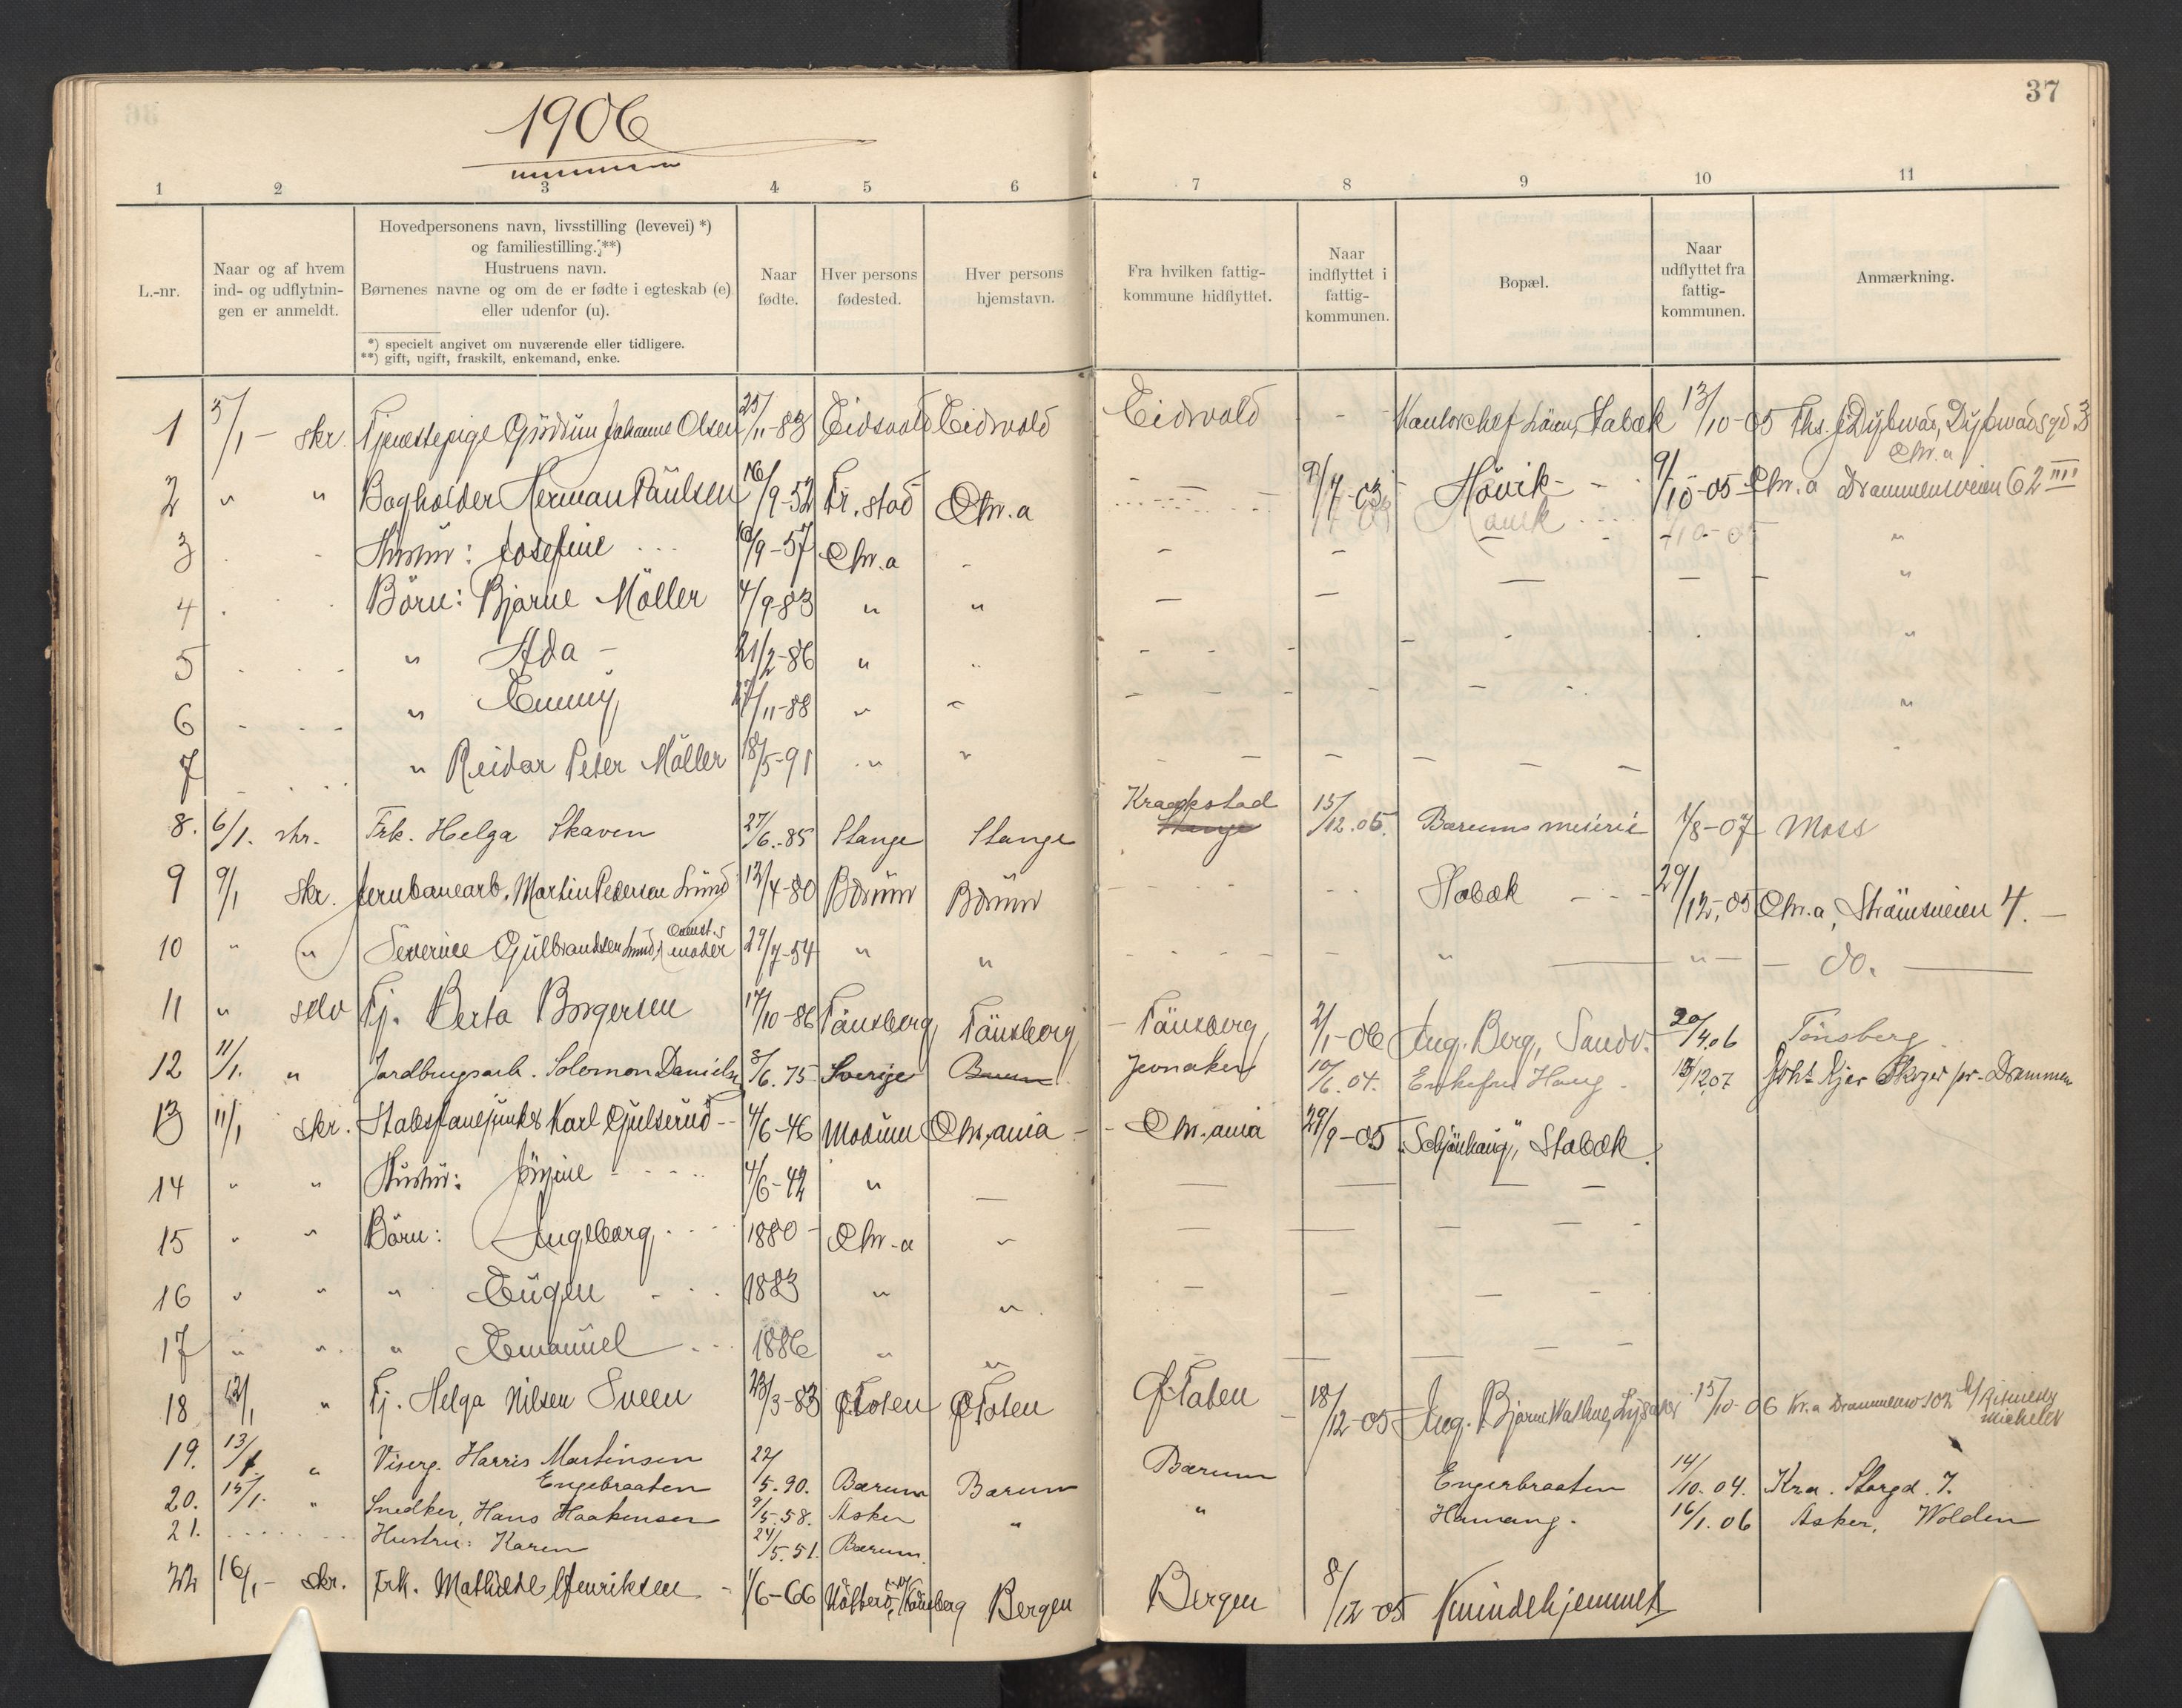 37
1906
1 2 3 4 5 6 7 8 9 10 11
L.-nr.
Naar og af hvem
ind- og udflytnin-
gen er anmeldt.
Hovedpersonens navn, livsstilling (levevei) *)
og familiestilling. **)
Hustruens navn.
Børnenes navne og om de er fødte i egteskab (e)
eller udenfor (u).
*) specielt angivet om nuværende eller tidligere.
**) gift, ugift, fraskilt, enkemand, enke.
Naar
fødte.
Hver persons
fødested.
Hver persons
hjemstavn.
Fra hvilken fattig-
kommune hidflyttet.
Naar
indflyttet i
fattig-
kommunen.
Bopæl.
Naar
udflyttet fra
fattig-
kommunen.
Anmærkning.
1 5/1 - skr. Tjenestepige Gudrun Johanne Olsen 25/11-83 Eidsvold Eidsvold Eidsvold - - Kontorchef Stabæk 13/10-05 Ths. J. Dybwad, Dybwadsgd. 3
Chr.a
2 " " Bogholder Herman Paulsen 16/9-52 Fr.stad Chr.a - - 9/7-03 Høvik - - 9/10-05 Chr.a Drammensveien 62 III
3 Hustru: Josefine 10/9-57 Chr.a - - - "
4 Børn: Bjarne Møller 4/9-83 " " - - - - - "
5 " Ada - 21/2-86 " " - - - "
6 " Emmy 27/11-88 " " - - - "
7 " Reidar Peter Møller 18/5-91 " " - - - "
8. 6/1. skr. Frk. Helga Skaven 27/6.-85 Stange Stange Kraakstad 15/12.05. Bærums meieri 1/8-07 Moss
Stange
9 9/1 skr. Jernbanearb. Martin Pedersen Lund 12/4-80 Bærum Bærum - - Stabæk - - 29/12-05 Chr.a, Strømsveien 4. -
10 " " Severine Gulbrandsen Lund, moder 29/7-54 " " - - " " - do.
11 " selv Tj. Berta Borgersen 17/10-86 Tønsberg Tønsberg - Tønsberg 2/1-06 Ing. Berg, Sandv. 20/4.06 Tønsberg
12 11/1. " Jordbrugsarb. Solomon Danielsen 8/6.75 Sverige Bærum Jevnaker 10/6.04. Enkefru Haug. 13/12.07 Joh. Kjer Skoger pr. Drammen
13 11/1 skr. Stabsfanejunker Karl Gulserud - 4/6-46 Modum Chr.ania - Chr.ania 29/9-05 "Schjønhaug", Stabæk
14 " " Hustru: Jørgine - - 4/6-42 " - - - - -
15 " " Børn: Ingeborg 1880 - Chr.a " - - - -
16 " " " Eugen 1883 " " -
17 " " " Emanuel 1886 " " - - -
18 12/1 " Tj. Helga Nilsen Sveen 23/3-83 Ø. Toten Ø. Toten Ø. Toten 18/12-05 Ing. Bjarne Lysaker 15/10-06 Kr.a
19. 13/1 " Viserg. Harris Martinsen 22/
Engebraaten 5.90. Bærum Bærum Bærum Engerbraaten 14/10.04. Kra. Storgd. 7.
20. 15/1. " Snedker, Hans Haakensen 9/5.58. Asker " " Hamang. 16/1.06 Asker, Wolden
21. Hustru: Karen 24/5.51. Bærum.
22 16/1 - skr. Frk. Mathilde Henriksen - 1/6-66 Bergen Bergen 8/12-05 Kvindehjemmet